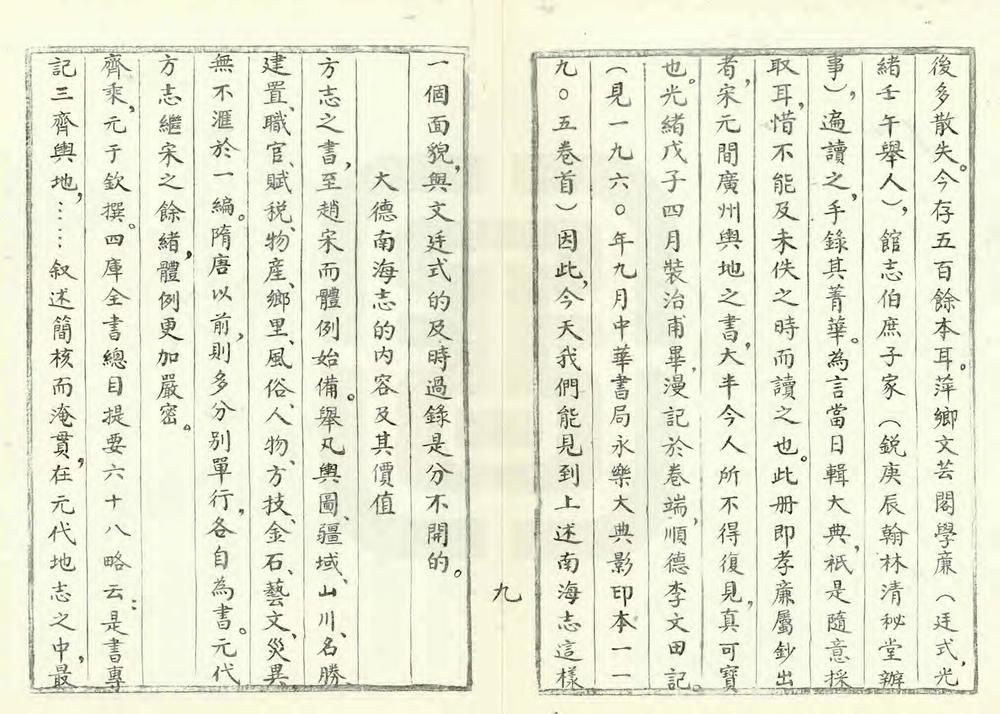 後多散失。今存五百餘本耳。萍鄉文芸閣學廉（廷式，光
緒壬午舉人），館志伯庶子家（銳庚辰翰林清秘堂辦
事），遍讀之，手錄其菁華。為言當日輯大典，祇是隨意採
取耳，惜不能及未佚之時而讀之也。此册即孝廉屬鈔出
者，宋元間廣州輿地之書，大半今人所不得復見，真可寶
也。光緒戊子四月裝治甫畢，漫記於卷端，順德李文田記。
（見一九六〇年九月中華書局永樂大典影印本一一
九〇五卷首）因此，今天我們能見到上述南海志這樣
九
一個面貌，與文廷式的及時過錄是分不開的。
大德南海志的內容及其價值
方志之書，至趙宋而體例始備。舉凡輿圖、疆域、山川、名勝
建置、職官、賦税、物產、鄉里、風俗、人物、方技、金石、藝文、災異，
無不滙於一編。隋唐以前，則多分別單行，各自為書。元代
方志繼宋之餘緒，體例更加嚴密。
齊乘，元于欽撰。四庫全書總目提要六十八略云：是書專
記三齊輿地，……叙述簡核而淹貫，在元代地志之中，最